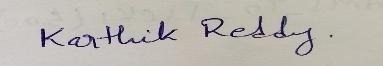 Karthik Reddy.